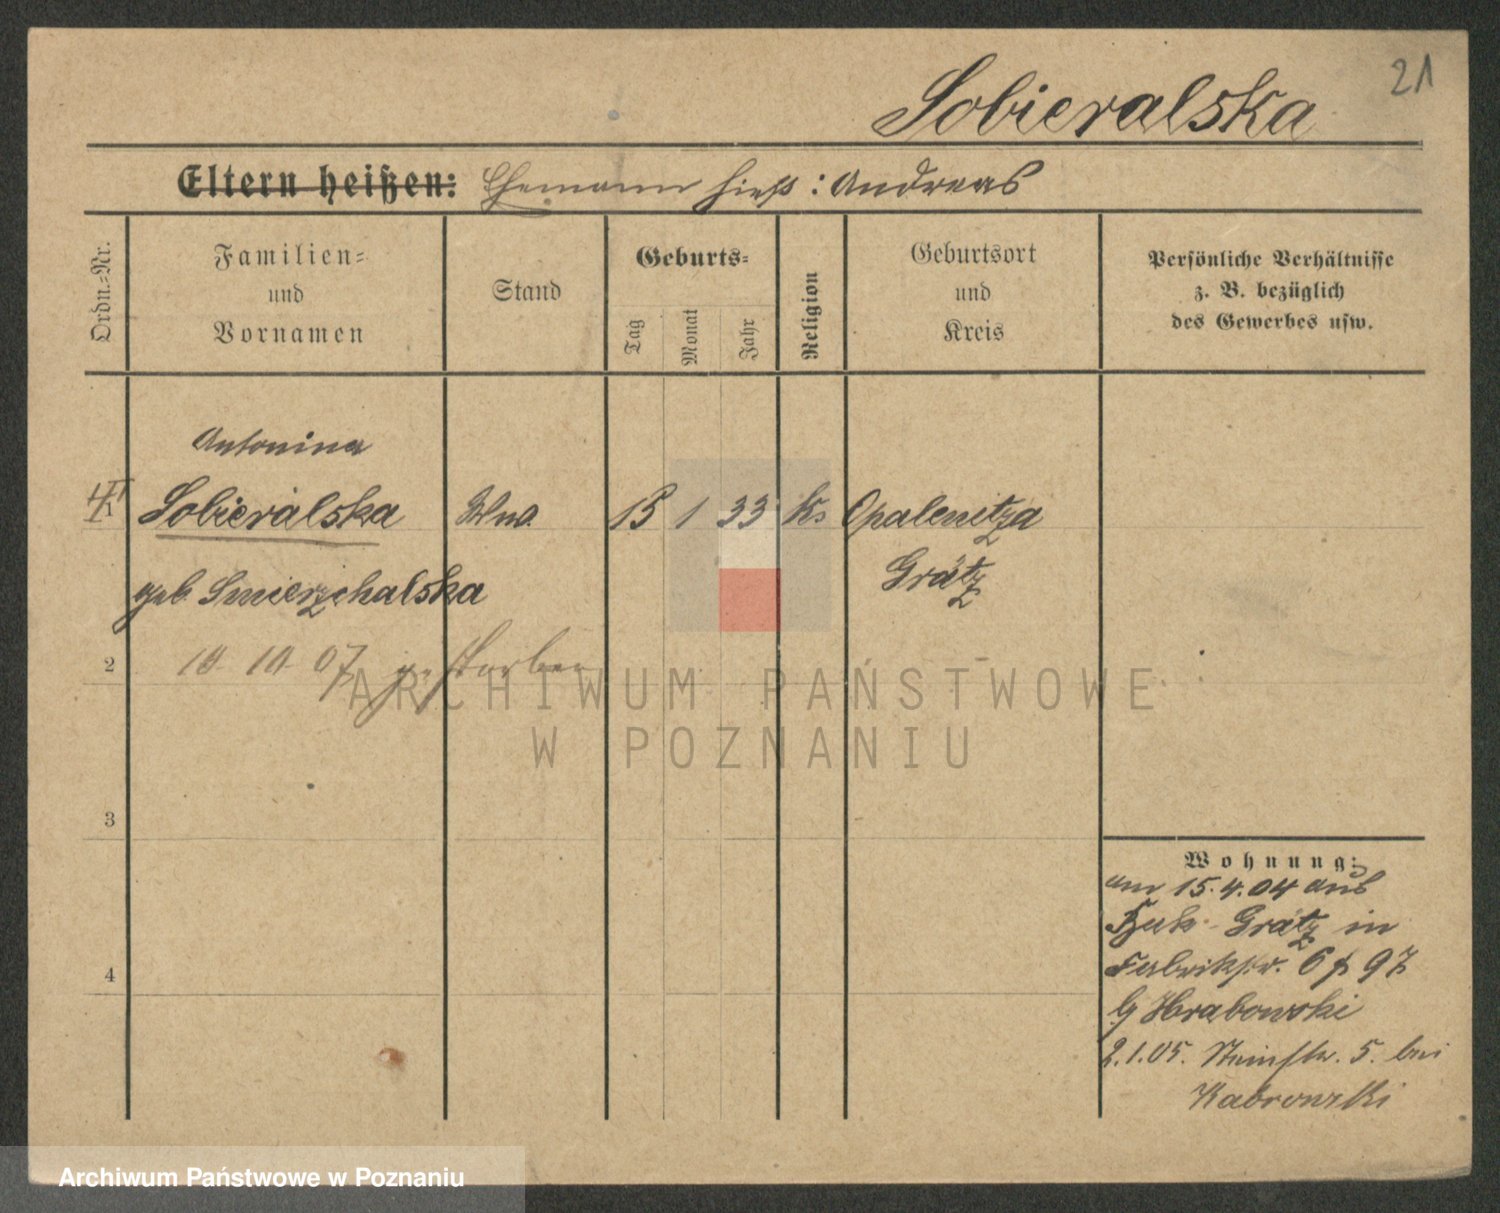 21
Sobieralska
Eltern heißen: Ehemann hieß: Andreas
Ordn.-Nr.
Familien-
und
Vornamen
Stand
Geburts-
Tag
Monat
Jahr
Religion
Geburtsort
und
Kreis
Persönliche Verhältnisse
z. B. bezüglich
des Gewerbes usw.
Antonina
1 Sobieralska Wwe. 15 1 33 k. Opalenitza
Grätz
geb. Smierzchalska
2 10. 10. 07 gestorben
3
4
Wohnung:
am 15.4.04 aus
Buk-Grätz in
Fabrikstr. 6 97
b/ Hrabowski
2.1.05. 5. bei
ARCHIWUM PAŃSTWOWE
W POZNANIU
Archiwum Państwowe w Poznaniu